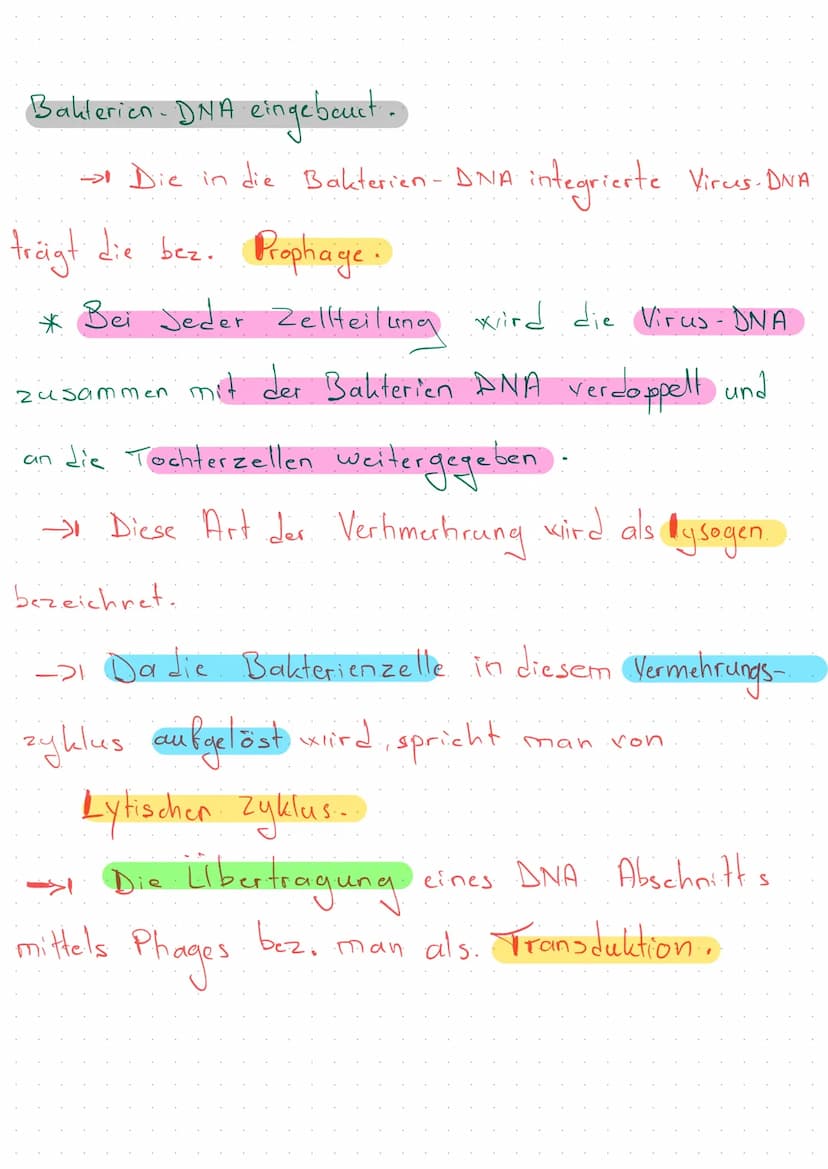 Bakterien-DNA eingebaut.
→ Die in die Bakterien-DNA integrierte Virus-DNA
trägt die bez. Prophage.
* Bei Jeder Zellteilung wird die Virus-DNA
zusammen mit der Bakterien DNA verdoppelt und
an die Tochterzellen weitergegeben.
→ Diese Art der Verhmerhrung wird als lysogen
bezeichnet.
→ Da die Bakterienzelle in diesem Vermehrungs-
zyklus aufgelöst wird, spricht man von
Lytischen Zyklus.
→ Die Übertragung eines DNA Abschnitts
mittels Phages bez. man als. Transduktion.